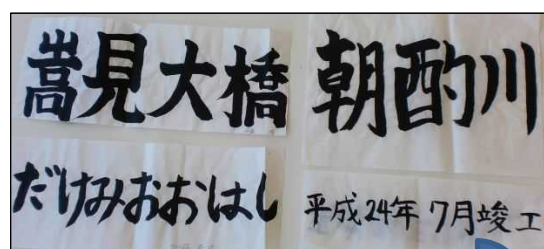 嵩見大橋
朝酌川
だけみおおはし
平成24年7月竣工